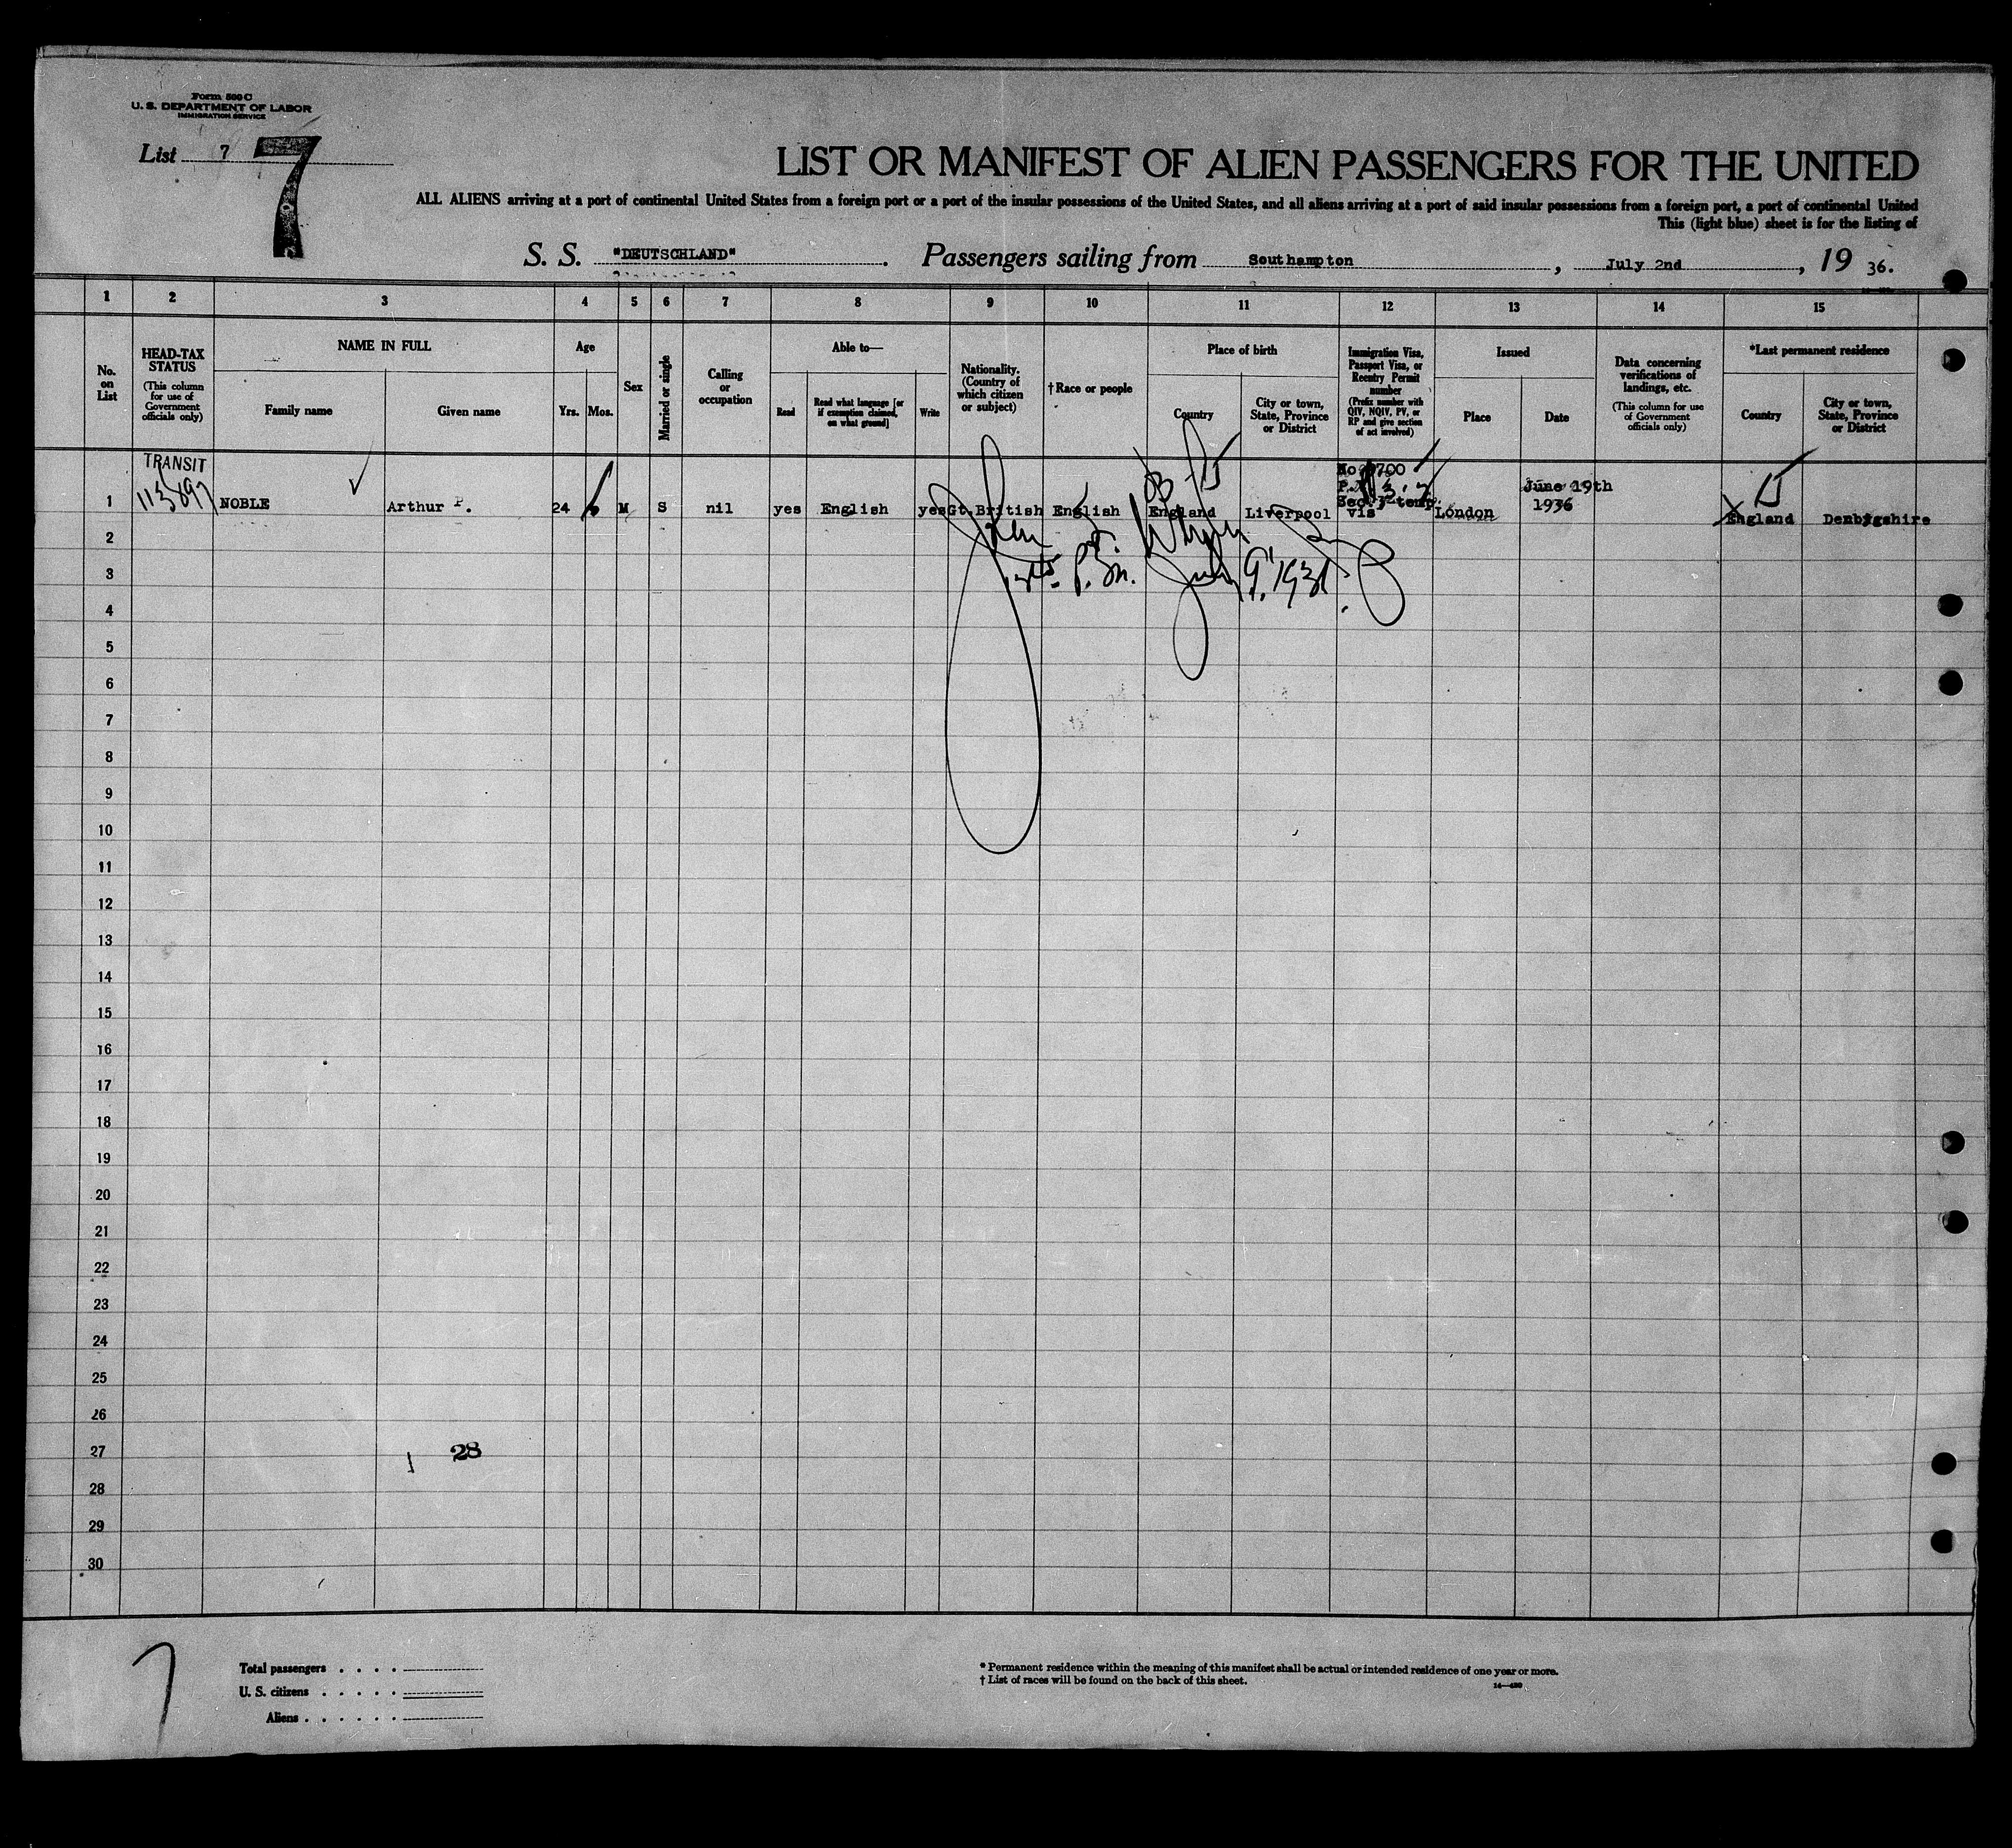 Form 500 C
U. S. DEPARTMENT OF LABOR
IMMIGRATION SERVICE
List 7
7
LIST OR MANIFEST OF ALIEN PASSENGERS FOR THE UNITED
ALL ALIENS arriving at a port of continental United States from a foreign port or a port of the insular possessions of the United States, and all aliens arriving at a port of said insular possessions from a foreign port, a port of continental United
This (light blue) sheet is for the listing of
S. S. "DEUTSCHLAND". Passengers sailing from Southampton, July 2nd, 19 36.
1 2 3 4 5 6 7 8 9 10 11 12 13 14 15
No. on List
HEAD-TAX STATUS
(This column for use of Government officials only)
NAME IN FULL
Family name
Given name
Age
Yrs. Mos.
Sex
Married or single
Calling or occupation
Able to—
Read
Read what language [or if exemption claimed, on what ground]
Write
Nationality. (Country of which citizen or subject)
†Race or people
Place of birth
Country
City or town, State, Province or District
Immigration Visa, Passport Visa, or Reentry Permit number
(Prefix number with QIV, NQIV, PV, or RP and give section of act involved)
Issued
Place
Date
Data concerning verifications of landings, etc.
(This column for use of Government officials only)
*Last permanent residence
Country
City or town, State, Province or District
TRANSIT
1 NOBLE Arthur P. 24 M S nil yes English yes Gt.British English England Liverpool vis London June 19th 1936 England Denbygshire
July 9, 193
2
3
4
5
6
7
8
9
10
11
12
13
14
15
16
17
18
19
20
21
22
23
24
25
26
27
28
28
29
30
7
Total passengers
U. S. citizens
Aliens
* Permanent residence within the meaning of this manifest shall be actual or intended residence of one year or more.
† List of races will be found on the back of this sheet.